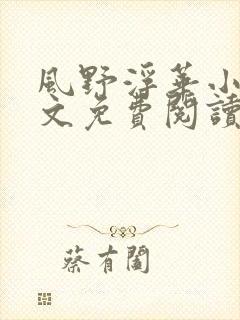 風野浮華小
文免費閱讀
蔡有闔